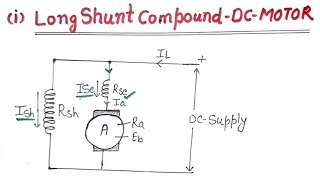 (i) Long Shunt Compound-DC-MOTOR
IL
+
ISe
Rse
Ia
ISh
Rsh
DC-Supply
A
Ra
Eb
-